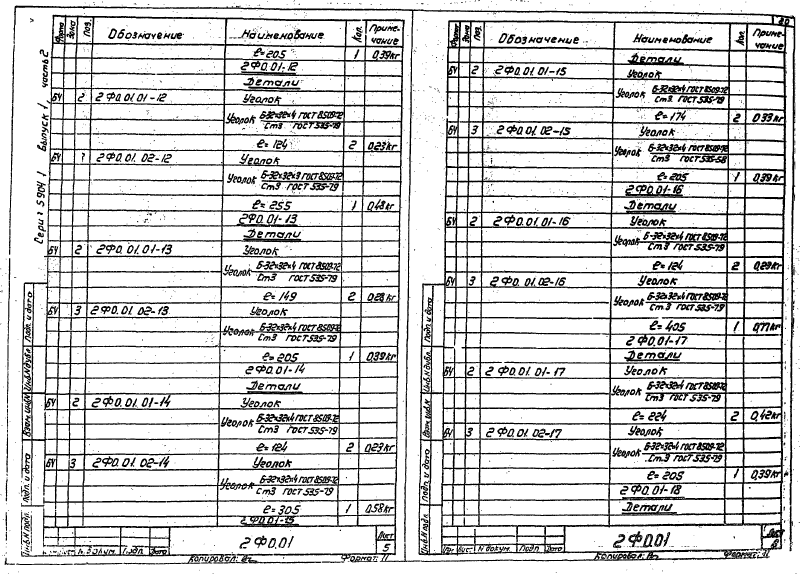 Формат Зона Поз. Обозначение Наименование Кол. Приме-
чание
ℓ=205 1 0,39кг
2Ф0.01-12
Детали
БЧ 2 2Ф0.01.01-12 Уголок
Уголок Б-32×32×4 ГОСТ 8509-72
Ст3 ГОСТ 535-79
ℓ=124 2 0,23кг
БЧ 2Ф0.01.02-12 Уголок
Уголок Б-32×32×3 ГОСТ 8509-72
Ст3 ГОСТ 535-79
ℓ=255 1 0,48кг
2Ф0.01-13
Детали
БЧ 2 2Ф0.01.01-13 Уголок
Уголок Б-32×32×4 ГОСТ 8509-72
Ст3 ГОСТ 535-79
ℓ=149 2 0,28кг
БЧ 3 2Ф0.01.02-13 Уголок
Уголок Б-32×32×4 ГОСТ 8509-72
Ст3 ГОСТ 535-79
ℓ=205 1 0,39кг
2Ф0.01-14
Детали
БЧ 2 2Ф0.01.01-14 Уголок
Уголок Б-32×32×4 ГОСТ 8509-72
Ст3 ГОСТ 535-79
ℓ=124 2 0,23кг
БЧ 3 2Ф0.01.02-14 Уголок
Уголок Б-32×32×4 ГОСТ 8509-72
Ст3 ГОСТ 535-79
ℓ=305 1 0,58кг
2Ф0.01-15
2Ф0.01
Лист
5
Копировал: Формат: 11
Выпуск 1, часть 2
Инв.N подл. Подп. и дата Взам. инв.N Инв.N дубл. Подп. и дата
20
Формат Зона Поз. Обозначение Наименование Кол. Приме-
чание
Детали
БЧ 2 2Ф0.01.01-15 Уголок
Уголок Б-32×32×4 ГОСТ 8509-72
Ст3 ГОСТ 535-79
ℓ=174 2 0,33кг
БЧ 3 2Ф0.01.02-15 Уголок
Уголок Б-32×32×4 ГОСТ 8509-72
Ст3 ГОСТ 535-58
ℓ=205 1 0,39кг
2Ф0.01-16
Детали
БЧ 2 2Ф0.01.01-16 Уголок
Уголок Б-32×32×4 ГОСТ 8509-72
Ст3 ГОСТ 535-79
ℓ=124 2 0,23кг
БЧ 3 2Ф0.01.02-16 Уголок
Уголок Б-32×32×4 ГОСТ 8509-72
Ст3 ГОСТ 535-79
ℓ=405 1 0,77кг
2Ф0.01-17
Детали
БЧ 2 2Ф0.01.01-17 Уголок
Уголок Б-32×32×4 ГОСТ 8509-72
Ст3 ГОСТ 535-79
ℓ=224 2 0,42кг
БЧ 3 2Ф0.01.02-17 Уголок
Уголок Б-32×32×4 ГОСТ 8509-72
Ст3 ГОСТ 535-79
ℓ=205 1 0,39кг
2Ф0.01-18
Детали
2Ф0.01
Лист
Лист N докум. Подп. Дата
Копировал: Формат: 11
Инв.N подл. Подп. и дата Взам. инв.N Инв.N дубл. Подп. и дата